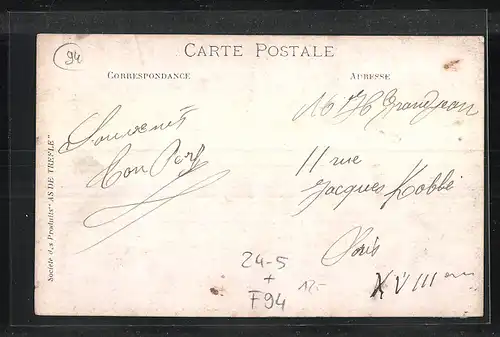 94
CARTE POSTALE
CORRESPONDANCE
ADRESSE
Souvenir
M H Grandjean
11 rue
Jacques Kobbé
Paris
XVIII
24-5
+
F94
125
Société des Produits "AS DE TREFLE"